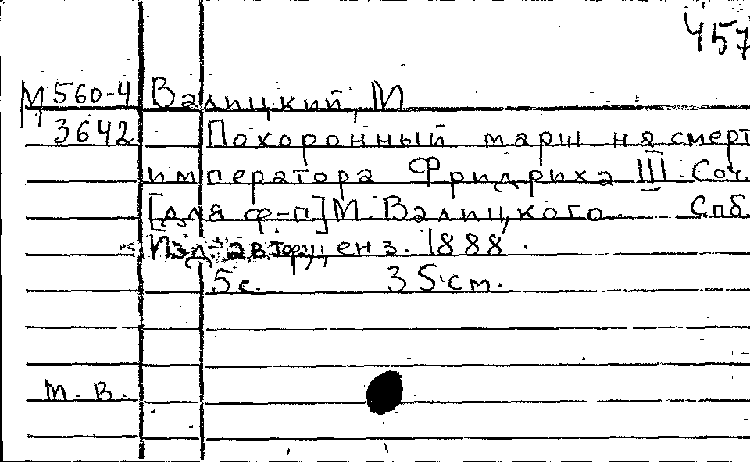 457
М 560-4 Валицкий, М
3642 Похоронный марш на смерт
императора Фридриха III. Соч.
[для ф-п] М. Валицкого Спб
Изд. автора, ценз. 1888.
5 с. 35 см.
м. в.